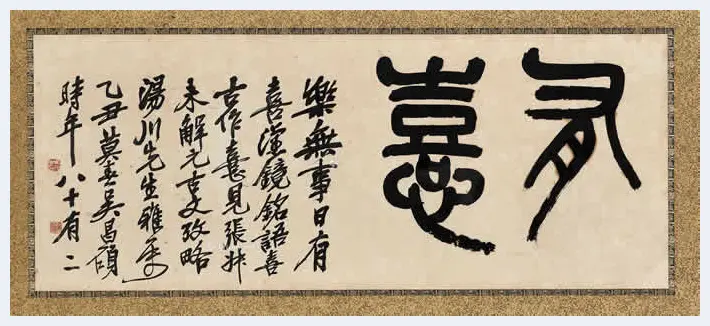 有憙
樂無事日有
喜漢鏡銘語喜
古作憙見張尗
未解元古文攷略
湯川先生雅屬
乙丑莫春吳昌碩
時年八十有二